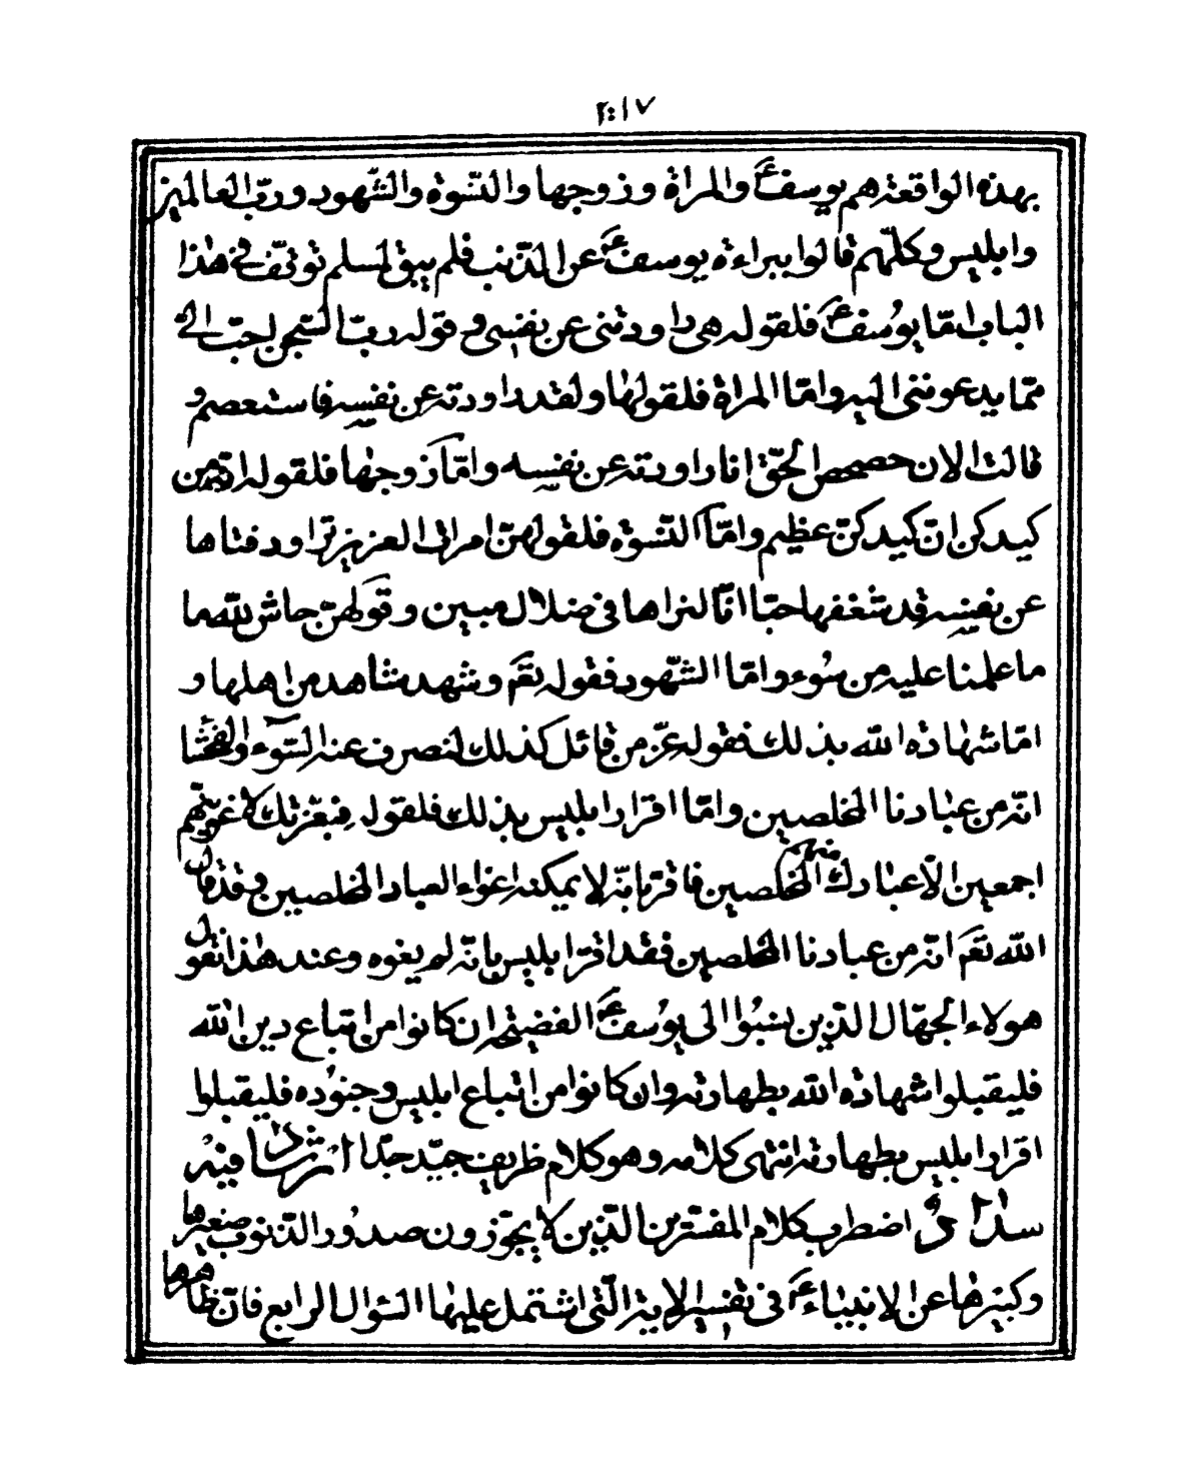 ٢٠١٧
بهذه الواقعة هم يوسف ع والمراة وزوجها والنّسوة والشّهود وربّ العالمين
وابليس وكلّهم قالوا ببراءة يوسف ع عن الذّنب فلم يبق لمسلم توقّف فى هذا
الباب امّا يوُسف ع فلقوله هى راودتنى عن نفسى وقوله ربّ السّجن احبّ الىّ
ممّا يدعوننى اليه وامّا المراة فلقولها ولقد راودته عن نفسه فاستعصم و
قالت الان حصحص الحقّ انا راودته عن نفسه وامّا زوجها فلقوله انّه من
كيدكن انّ كيدكنّ عظيم وامّا النّسوة فلقولهنّ امراة العزيز تراود فتاها
عن نفسه قد شغفها حبّا انّا لنراها فى ضلال مبين وقولهنّ حاش للّه ما
ما علمنا عليه من سُوء وامّا الشّهود فقوله تعَ وشهد شاهد من اهلها و
امّا شهادة اللّه بذلك فقوله عزّ من قائل كذلك لنصرف عنه السّوء والفحشا
انّه من عبادنا المخلصين وامّا اقرار ابليس بذلك فلقوله فبعزّتك لاغوينّهم
اجمعين الّا عبادك منهم المخلصين فاقرّ بانّه لا يمكنه اغواء العباد المخلصين وقد قال
اللّه تعَ انّه من عبادنا المخلصين فقد اقرّ ابليس بانّه لم يغوه وعند هذا نقول
هولاء الجهّال الذّين نسبُوا الى يوُسف ع الفضيحة ان كانوا من اتباع دين اللّه
فليقبلوا شهادة اللّه بطهارته وان كانوا من اتباع ابليس وجنوُده فليقبلوا
اقرار ابليس بطهارته انتهى كلامه وهو كلام ظريف جيّد جدّا ارشاد فيه
سداد اضطرب كلام المفسّرين الذّين لا يجوّزون صدوُر الذّنوب صغيرها
وكبيرها عن الانبياء ع فى تفسير الاية الّتى اشتمل عليها السّؤال الرابع فانّ ظاهرها